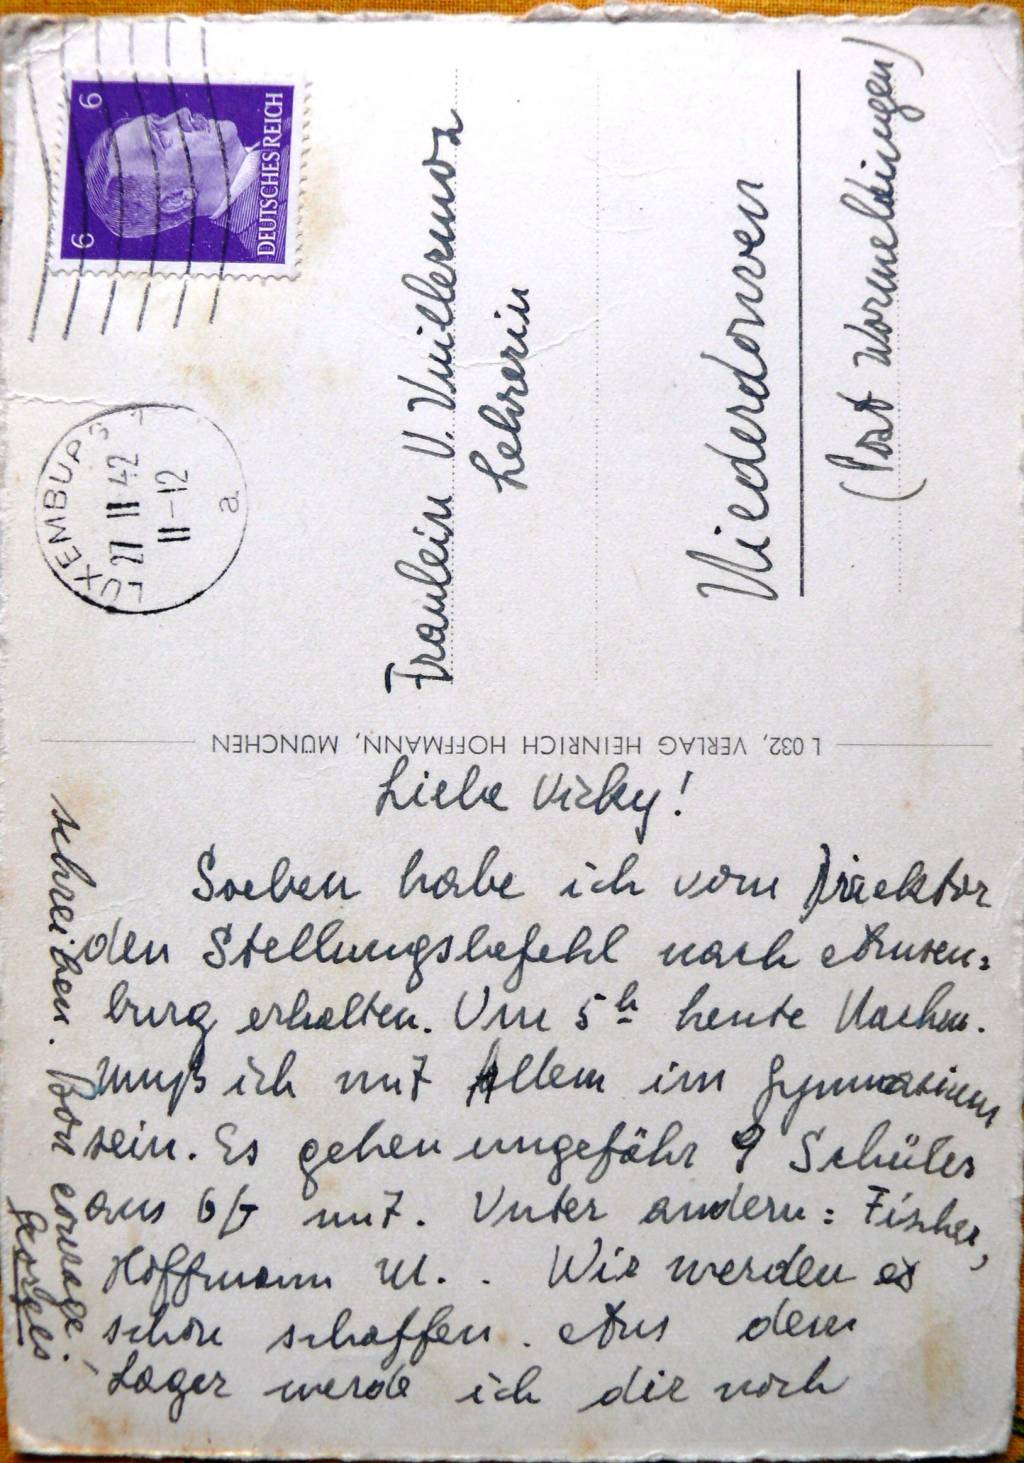 6
6
DEUTSCHES REICH
LUXEMBURG 1
27 11 42
11-12
a
Fraulein V. Vuillermoz
Lehrerin
Niederdonven
(Post Wormeldingen)
L 032, VERLAG HEINRICH HOFFMANN, MÜNCHEN
Liebe Vicky!
Soeben habe ich vom Direktor
den Stellungsbefehl nach
burg erhalten. Um 5h heute Nachm.
muß ich mit Allem im Gymnasium
sein. Es gehen ungefähr 9 Schüler
aus mit. Unter andern: Fischer,
Hoffmann M.. Wir werden es
schon schaffen. Aus dem
Lager werde ich dir noch
schreiben. Bon courage.
Georges